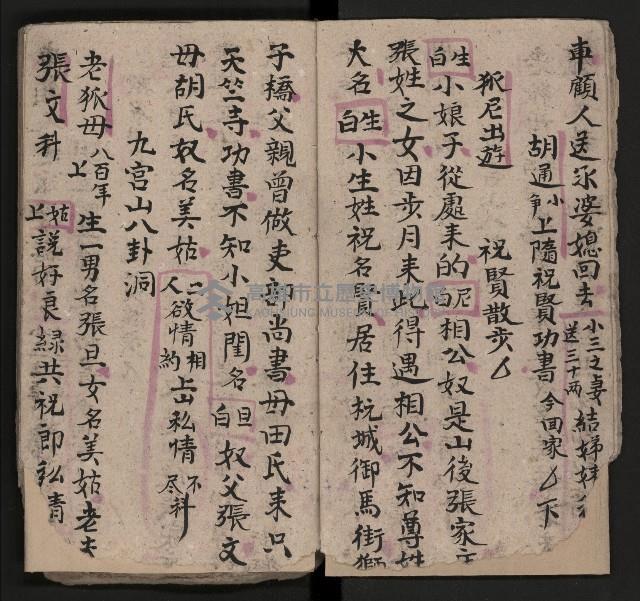 車顧人送尔婆媳回去 小三之妻 送三十两 結娣妹
胡通 小爭 上隨祝賢功書 今回家 下
狐尼出遊 祝賢散步
生白 小娘子從處来的 尼白 相公奴是山後張家庄
張姓之女因步月来此得遇相公不知尊姓
大名 生白 小生姓祝名賢居住杭城御馬街獅
子橋父親曾做吏部尚書母田氏来只
天竺寺功書不知小姐閨名 旦白 奴父張文
母胡氏奴名美姑 二人欲情相約 上山私情 不尽科
九宫山八卦洞
老狐母 八百年 上 生一男名張旦女名美姑老夫
張文科 姑上 説好良緑共祝郎私情
高雄市立歷史博物館
KAOHSIUNG MUSEUM OF HISTORY